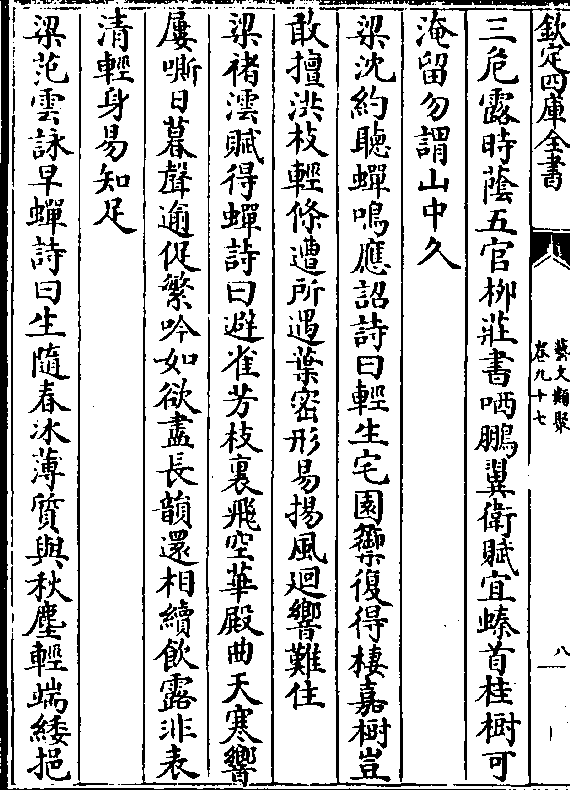 欽定四庫全書
藝文類聚
卷九十七
八
三危露時蔭五官柳莊書哂鵬翼衛賦宜螓首桂樹可
淹留勿謂山中久
梁沈約聽蟬鳴應詔詩曰輕生宅園籞復得棲嘉樹豈
敢擅洪枝輕條遭所遇葉密形易揚風迴響難住
梁禇澐賦得蟬詩曰避雀芳枝裏飛空華殿曲天寒響
屢嘶日暮聲逾促繁吟如欲盡長韻還相續飲露非表
清輕身易知足
梁范雲詠早蟬詩曰生隨春冰薄質與秋塵輕端緌挹